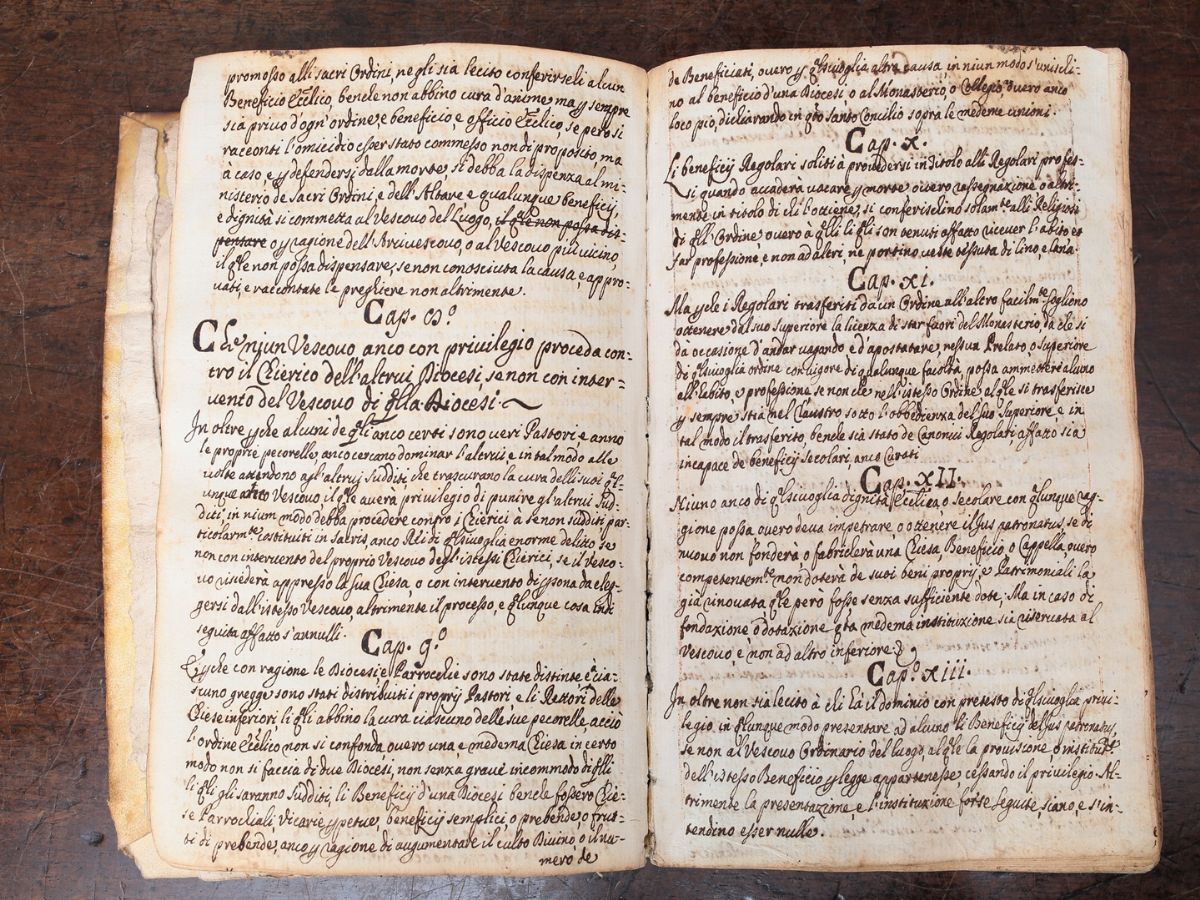 promosso alli sacri Ordini, ne gli sia lecito conferirseli alcun
Beneficio Ecc.lico, benche non abbino cura d'anime, ma y sempre
sia privo d'ogn'ordine, e beneficio, e officio Ecc.lico, se però si
racconti l'omicidio esser stato commesso non di proposito, ma
à caso, e y defendersi dalla morte, si debba la dispenza al mi-
nisterio de Sacri Ordini, e dell'Altare e qualunque beneficij,
e dignità si commetta al Vescovo del Luogo, il q'le non possa dis-
pensare o y ragione dell'Arcivescovo, o al Vescovo più vicino,
il q'le non possa dispensare, se non conosciuta la causa, e appro-
vati, e raccontate le preghiere non altrimente.
Cap. 8º
Che niun Vescovo anco con privilegio proceda con-
tro il Chierico dell'altrui Diocesi, se non con inter-
vento del Vescovo di q'lla Diocesi ~
In oltre yche alcuni de q'li anco certi sono veri Pastori e anno
le proprie pecorelle, anco cercano dominar l'altrui e in tal modo alle
volte attendono agl'altrui sudditi che trascurano la cura delli suoi q'l-
unque altro Vescovo il q'le averà privilegio di punire gl'altrui Sud-
diti, in niun modo debba procedere contro i Chierici à se non sudditi par-
ticolarm.te costituiti in Sacris, anco Rei di q'lsivoglia enorme delitto, se
non con intervento del proprio Vescovo degl'istessi Chierici, se il Vesco-
vo risederà appresso la sua Chiesa, o con intervento di ysona da eleg-
gersi dall'istesso Vescovo, altrimente il processo, e q'lunque cosa indi
seguita affatto s'annulli.
Cap. 9º
E yche con ragione le Diocesi e Parrocchie sono state distinte e à cia-
scuno gregge sono stati distribuiti i proprij Pastori e li Rettori delle
Chiese inferiori li q'li abbino la cura ciascuno delle sue pecorelle, acciò
l'ordine Ecc.lico non si confonda overo una, e medema Chiesa in certo
modo non si faccia di due Diocesi, non senza grave incommodo di q'lli
li q'li gli saranno sudditi, li Beneficij d'una Diocesi benche fossero Chie-
se Parrochiali, Vicarie ypetue, beneficij semplici, o prebende, o frut-
ti di prebende, anco y ragione di augumentare il culto Divino o il nu-
mero de
de Beneficiati, overo y q'lsivoglia altra causa in niun modo s'unischi-
no al beneficio d'una Diocesi o al Monasterio, o Collegio, overo anco
loco pio, dichiarando in q'to Santo Concilio sopra le medeme unioni.
Cap. X.
Li beneficij Regolari soliti à provedersi in titolo alli Regolari profes-
si quando accaderà vacare y morte overo rassegnazione o altri-
mente in titolo di chi l'ottiene, si conferischino solam.te alli Religiosi
di q'll'Ordine, overo à q'lli li q'li son tenuti affatto ricever l'abito et
far professione, e non ad altri, ne portino veste tessuta di lino, e lana.
Cap. xi.
Ma yche i Regolari trasferiti da un Ordine all'altro facilm.te sogliono
ottenere dal suo Superiore la licenza di star fuori del Monasterio, da che si
dà occasione d'andar vagando, e d'apostatare, nessun Prelato, o Superiore
di q'lsivoglia ordine con vigore di qualunque facoltà possa ammettere alcuno
all'abito, e professione se non che nell'istesso Ordine al q'le si trasferisce
y sempre stia nel Claustro sotto l'obbedienza del suo Superiore e in
tal modo il trasferito, benche sia stato de Canonici Regolari affatto sia
incapace de beneficij secolari, anco Curati
Cap. XII.
Niuno anco di q'lsivoglia dignità Ecc.lica o Secolare con q'lunque rag-
gione possa overo deva impetrare, o ottenere il Jus patronatus, se di
nuovo non fonderà o fabricherà una Chiesa Beneficio, o Cappella, overo
competentem.te non doterà de suoi beni proprij, e Patrimoniali la
già rinovata q'le però fosse senza sufficiente dote; Ma in caso di
fondazione o dotazione q'ta medema instituzione sia riservata al
Vescovo, e non ad altro inferiore.
Cap. xiii.
In oltre non sia lecito à chi hà il dominio con pretesto di q'lsivoglia privi-
legio in q'lunque modo presentare ad alcuno li Beneficij del Jus patronatus,
se non al Vescovo Ordinario del luogo, al q'le la provisione, o instituz.ne
dell'istesso Beneficio y legge appartenesse, cessando il privilegio. Al-
trimente la presentazione, e l'instituzione forse seguite, siano, e s'in-
tendino esser nulle.